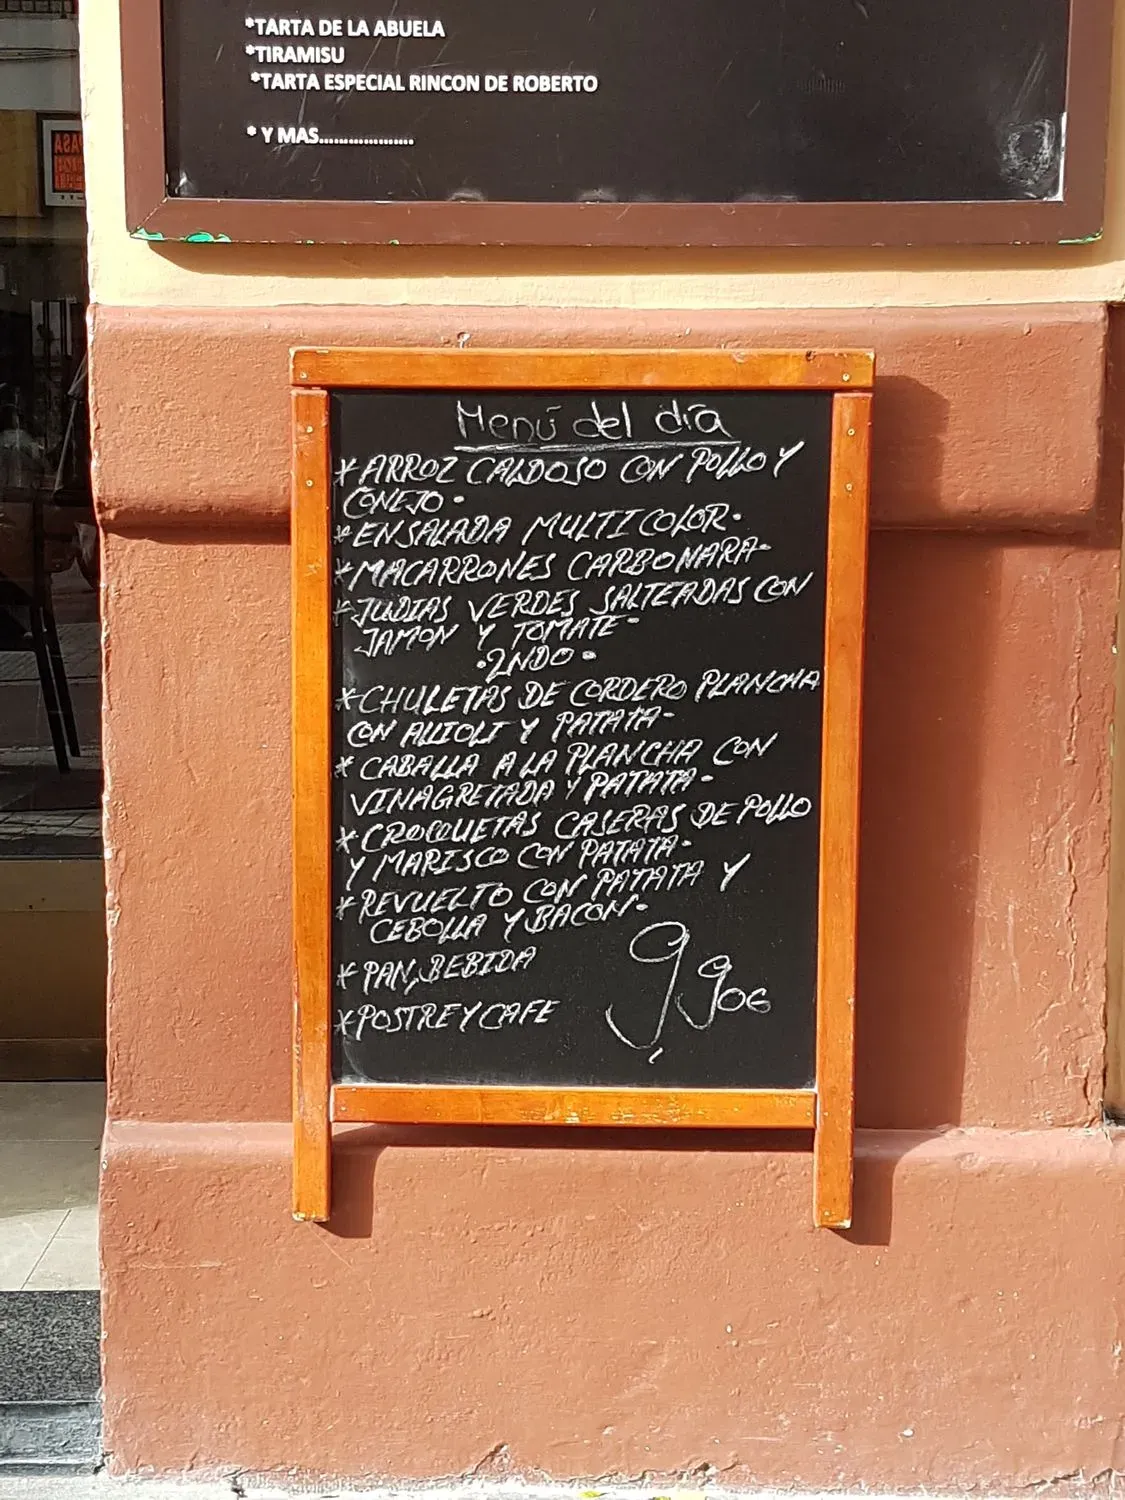 *TARTA DE LA ABUELA
*TIRAMISU
*TARTA ESPECIAL RINCON DE ROBERTO
* Y MAS...................
Menú del día
* ARROZ CALDOSO CON POLLO Y
CONEJO.
* ENSALADA MULTICOLOR.
* MACARRONES CARBONARA-
* JUDIAS VERDES SALTEADAS CON
JAMON Y TOMATE-
.2NDO.
* CHULETAS DE CORDERO PLANCHA
CON ALLIOLI Y PATATA-
* CABALLA A LA PLANCHA CON
VINAGRETADA Y PATATA-
* CROCQUETAS CASERAS DE POLLO
Y MARISCO CON PATATA-
* REVUELTO CON PATATA Y
CEBOLLA Y BACON-
* PAN, BEBIDA
* POSTRE Y CAFE
9,90€